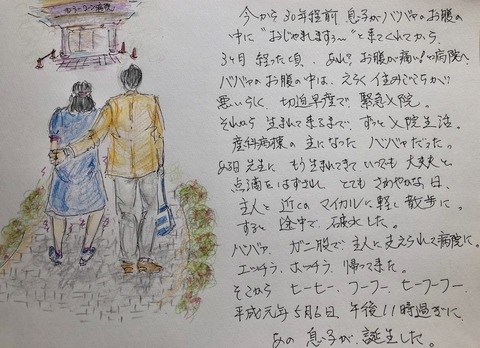 今から30年程前 息子がババァのお腹の
中に "おじゃましますぅ〜" と来てくれてから
3ヶ月 経った頃 お腹が痛い!で病院へ
ババァのお腹の中は、えらく 住みごこちが
悪いらしく 切迫早産で 緊急入院。
それから 生まれて来るまで ずっと入院生活。
産科病棟の 主になった ババァだった。
ある日先生に もう生まれてきていいても 大丈夫と
点滴をはずされ とても さわやかな日、
主人と 近くの マイカルに 軽く散歩に。
すると 途中で、破水した。
ババァ、ガニ股で 主人に支えられて病院に。
エッチラ、ホッチラ、帰って来た。
そこから ヒーヒー、フーフー、ヒーフーフー。
平成元年5月6日、午後11時過ぎに
あの 息子が、誕生した。